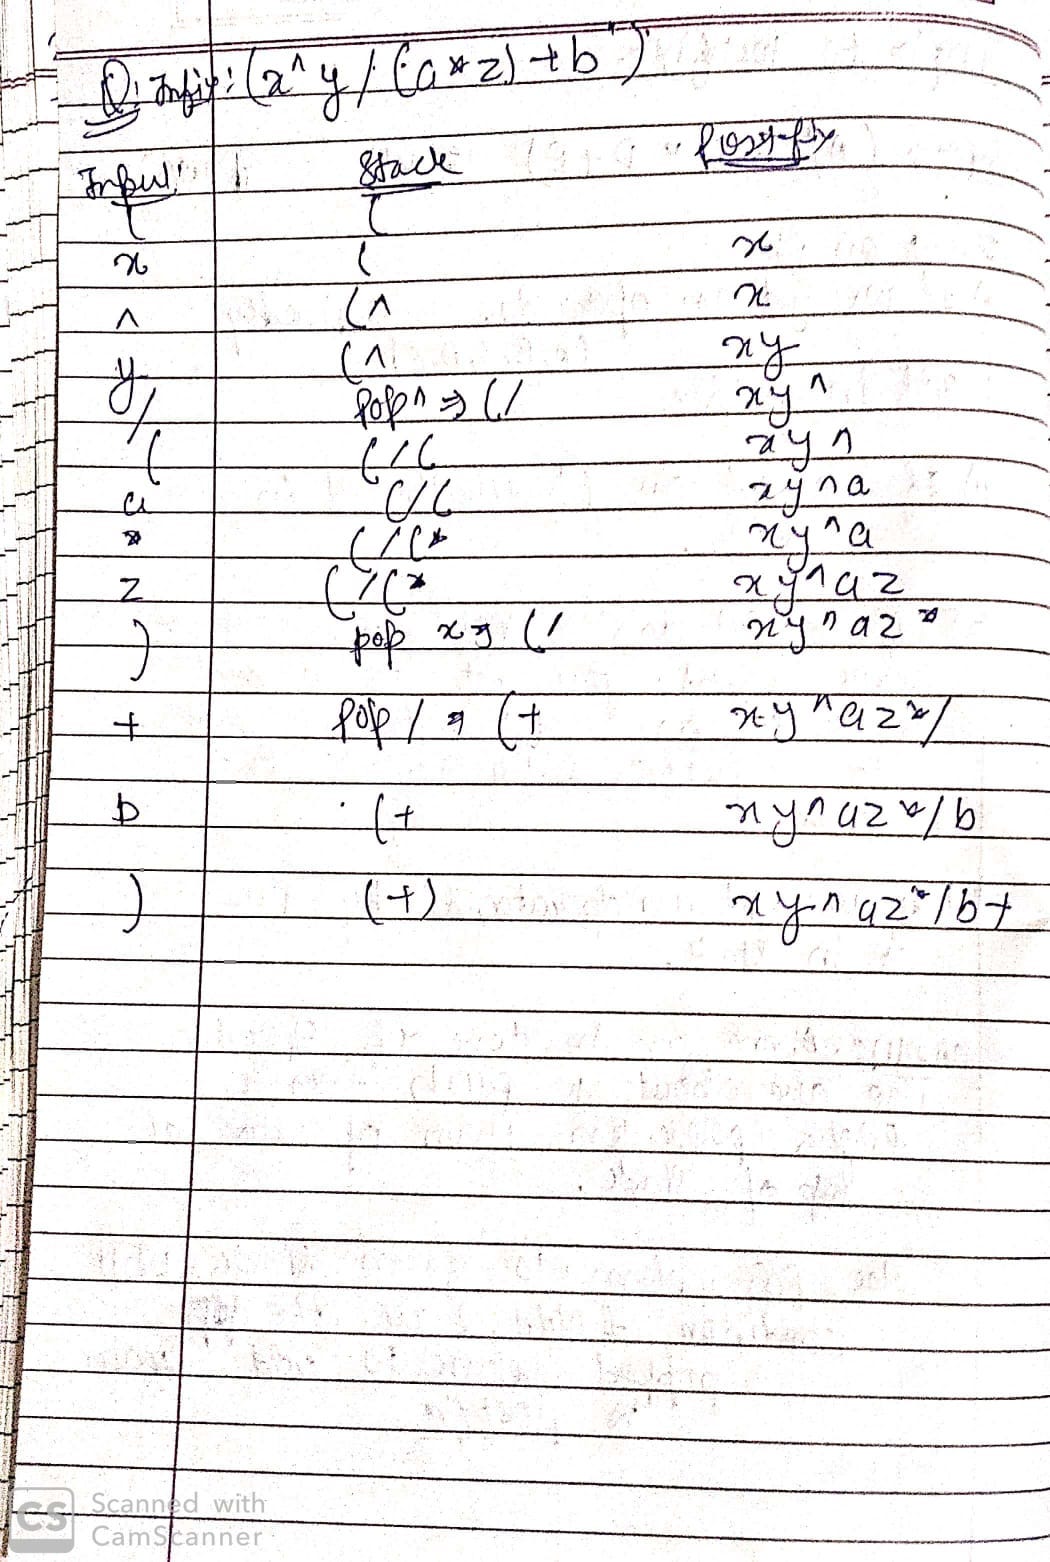 Q: Infix: (x^y/(a*z)+b)
Input Stack Postfix
( (
x ( x
^ (^ x
y (^ xy
/ pop^ ⇒ (/ xy^
( (/( xy^
a (/( xy^a
* (/(* xy^a
z (/(* xy^az
) pop x ⇒ (/ xy^az*
+ pop / ⇒ (+ xy^az*/
b (+ xy^az*/b
) (+) xy^az*/b+
CS Scanned with
CamScanner